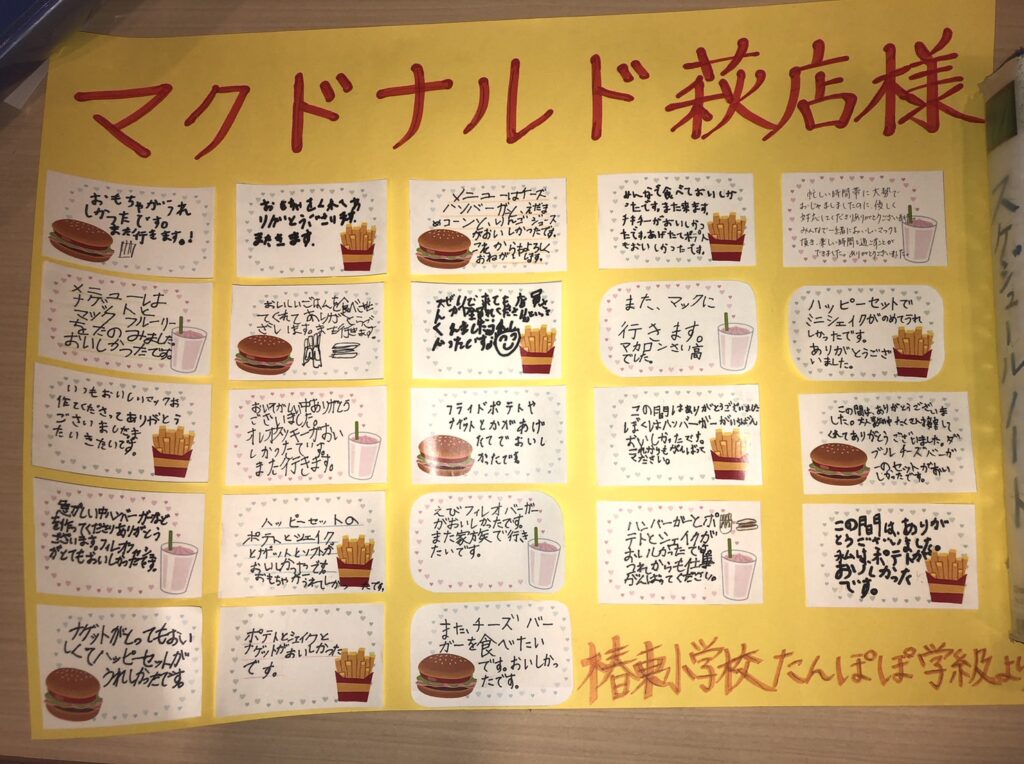 マクドナルド萩店様
おもちゃがうれ
しかったです。
また行きます。!
おもちゃをくれてあ
りがとうございます。
またきます。
メニューはチーズ
バーガーと、えだま
めコーンと、りんごジュース
がおいしかったです。
これからもよろしく
おねがいします。
みんなで食べておいしか
ったです。また来ます。
チキチーがおいしかっ
たです。あげたてポテト
もおいしかったです。
忙しい時間帯に大勢で
おじゃましましたのに、優しく
対応してくださりありがとうございました。
みんなで一緒においしいマックを
頂き、楽しい時間を過ごすことが
できました。ありがとうございました。
メニューは
ナゲットと
マックフルーリー
おいしかったです。
おいしいごはんを食べさせ
てくれてありがとうご
ざいます。また行きます。
また、マックに
行きます。
マカロンさい高
でした。
ハッピーセットで
ミニシェイクがのめてうれ
しかったです。
ありがとうござ
いました。
いつもおいしいマックお
作てくださってありがとう
ございましたま
たいきたいです。
おいそがしい中ありがとう
ございました。
オレオクッキーおい
しかったです。
また行きます。
フライドポテトや
ナゲットとかがあげ
たてでおいし
かったです
この間はありがとうございました
ぼくはハンバーガーがいちばん
おいしかったです。
これからもがんばって
ください。
この間は、ありがとうございま
した。大人数の中たくさん接客して
くれてありがとうございました。ダ
ブルチーズバーガ
ーのセットがおい
しかったです。
急がしい中ハンバーガーなど
を作ってくださりありがとう
ございます。フィレオフィッシュ
がとてもおいしかったです。
ハッピーセットの
ポテトとシェイク
とナゲットとソフトが
おいしかったです
おもちゃがうれしかったです。
えびフィレオバーガー
がおいしかったです。
また家族で行き
たいです。
ハンバーガーとポ
テトとシェイクが
おいしかったです
これからも仕事
がんばってください。
この間は、ありが
とうございました。
私は、ポテトが
おいしかった
です。
ナゲットがとってもおい
しくてハッピーセットが
うれしかったです。
ポテトとシェイクと
ナゲットがおいしかった
です。
また、チーズバー
ガーを食べたい
です。おいしかっ
たです。
椿東小学校たんぽぽ学級より
スケジュールノート